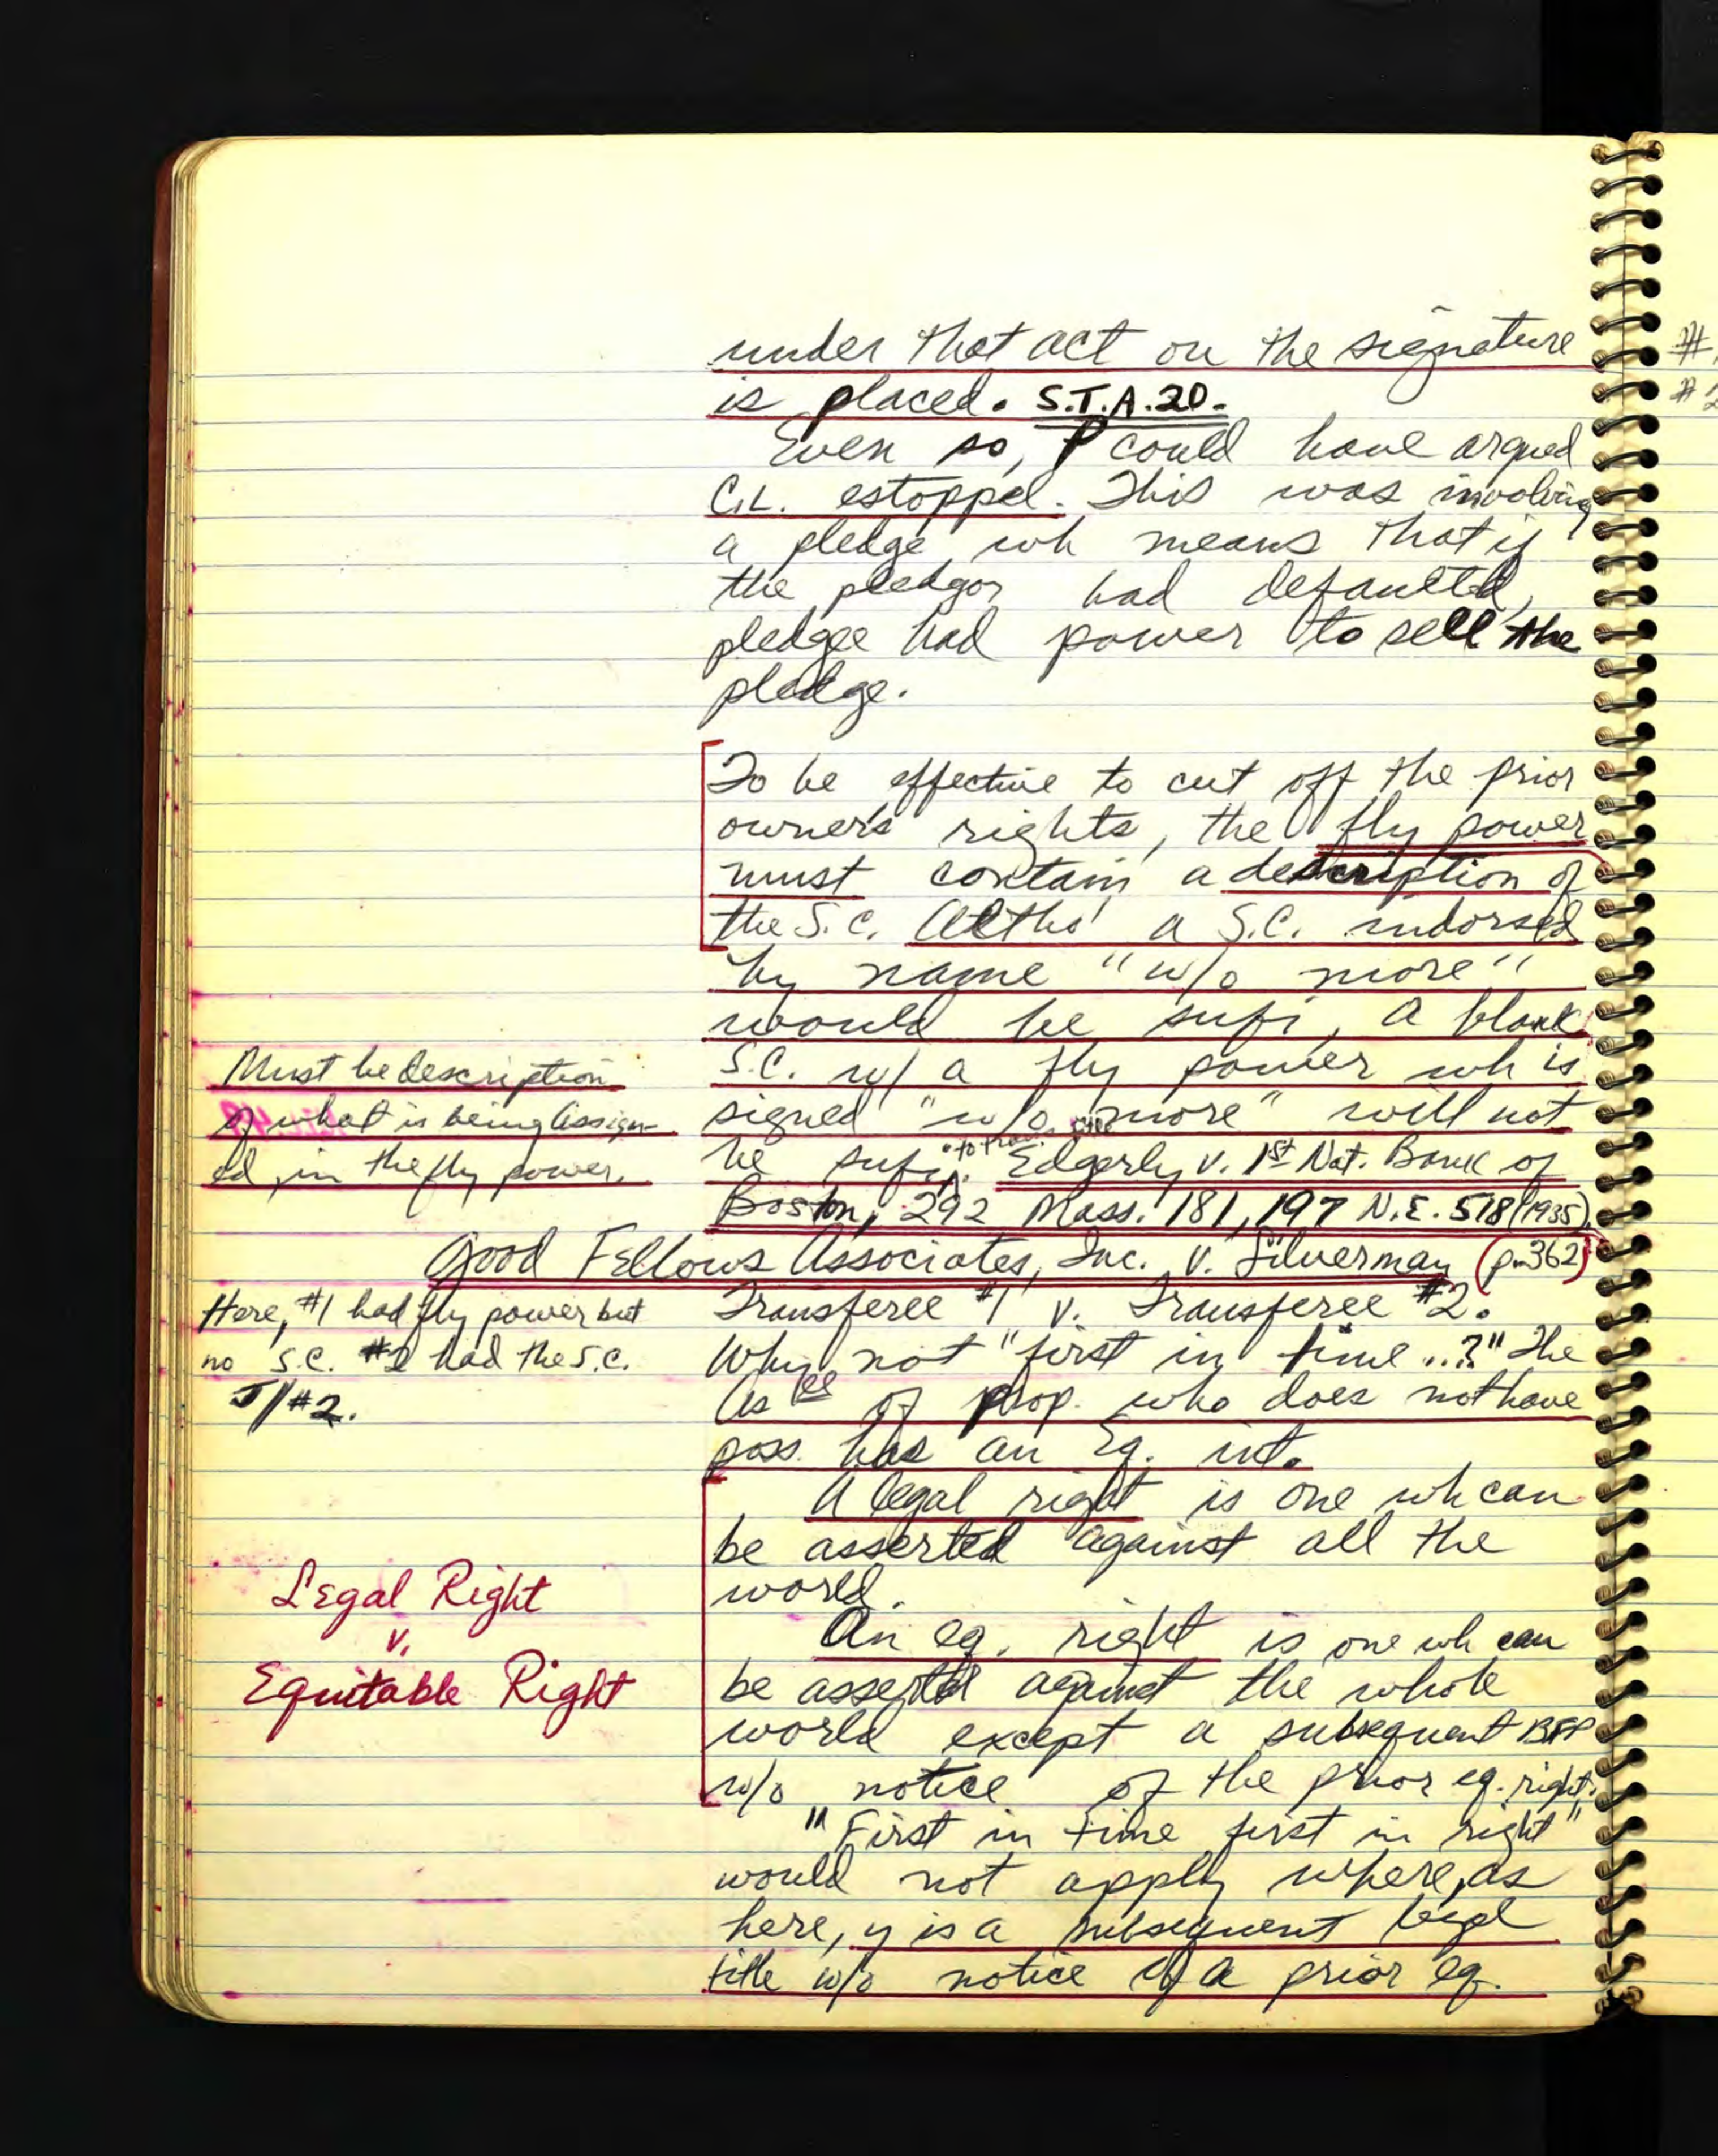 under that act on the signature
is placed. S.T.A. 20.
Even so, P could have argued
C.L. estoppel. This was involving
a pledge wh means that if
the pledgor had defaulted,
pledgee had power to sell the
pledge.
To be effective to cut off the prior
owner's rights, the fly power
must contain a description of
the S.C. Altho' a S.C. indorsed
by name "w/o more"
would be sufi, a blank
S.C. w/ a fly power wh is
signed "w/o more" will not
be sufi. to trans. Edgerly v. 1st Nat. Bank of
Boston, 292 Mass. 181, 197 N.E. 518 (1935).
Must be description
of what is being assign-
ed, in the fly power.
Good Fellows Associates, Inc. v. Silverman (p. 362)
Here, #1 had fly power but
no S.C. #2 had the S.C.
J/#2.
Transferee #1 v. Transferee #2.
Why not "first in time...?" The
As ee of prop. who does not have
poss. has an Eq. int.
A legal right is one wh can
be asserted against all the
world.
Legal Right
v.
Equitable Right
An eq. right is one wh can
be asserted against the whole
world except a subsequent BFP
w/o notice of the prior eq. right.
"First in time first in right"
would not apply where, as
here, y is a subsequent legal
title w/o notice of a prior eq.
#
#2